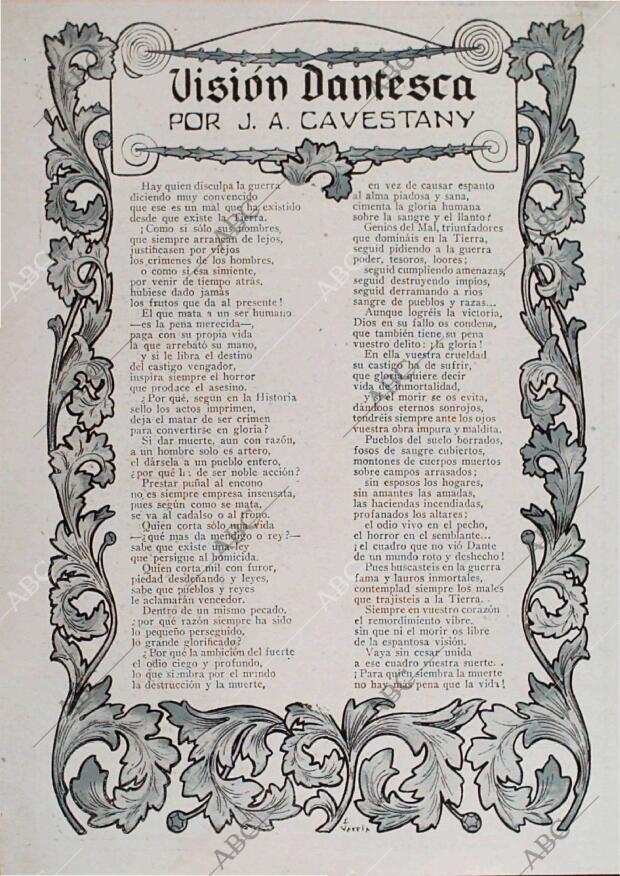 Visión Dantesca
POR J. A. CAVESTANY
Hay quien disculpa la guerra
diciendo muy convencido
que ese es un mal que ha existido
desde que existe la Tierra.
¡Como si sólo los hombres,
que siempre arrancan de lejos,
justificasen por viejos
los crímenes de los hombres,
o como si esa simiente,
por venir de tiempo atrás,
hubiese dado jamás
los frutos que da al presente!
El que mata a un ser humano
—es la pena merecida—,
paga con su propia vida
la que arrebató su mano,
y si le libra el destino
del castigo vengador,
inspira siempre el horror
que produce el asesino.
¿Por qué, según en la Historia
sello los actos imprimen,
deja el matar de ser crimen
para convertirse en gloria?
Si dar muerte, aun con razón,
a un hombre solo es artero,
el dársela a un pueblo entero,
¿por qué ha de ser noble acción?
Prestar puñal al encono
no es siempre empresa insensata,
pues según como se mata,
se va al cadalso o al trono.
Quien corta sólo una vida
—¿qué mas da mendigo o rey?—
sabe que existe una ley
que persigue al homicida.
Quien corta mil con furor,
piedad desdeñando y leyes,
sabe que pueblos y reyes
le aclamarán vencedor.
Dentro de un mismo pecado,
¿por qué razón siempre ha sido
lo pequeño perseguido,
lo grande glorificado?
¿Por qué la ambición del fuerte
el odio ciego y profundo,
lo que siembra por el mundo
la destrucción y la muerte,
en vez de causar espanto
al alma piadosa y sana,
cimenta la gloria humana
sobre la sangre y el llanto?
Genios del Mal, triunfadores
que domináis en la Tierra,
seguid pidiendo a la guerra
poder, tesoros, loores;
seguid cumpliendo amenazas,
seguid destruyendo impíos,
seguid derramando a ríos
sangre de pueblos y razas...
Aunque logréis la victoria,
Dios en su fallo os condena,
que también tiene su pena
vuestro delito: ¡la gloria!
En ella vuestra crueldad
su castigo ha de sufrir,
que gloria quiere decir
vida de inmortalidad,
y si el morir se os evita,
dándoos eternos sonrojos,
tendréis siempre ante los ojos
vuestra obra impura y maldita.
Pueblos del suelo borrados,
fosos de sangre cubiertos,
montones de cuerpos muertos
sobre campos arrasados;
sin esposos los hogares,
sin amantes las amadas,
las haciendas incendiadas,
profanados los altares;
el odio vivo en el pecho,
el horror en el semblante...
¡el cuadro que no vió Dante
de un mundo roto y deshecho!
Pues buscasteis en la guerra
fama y lauros inmortales,
contemplad siempre los males
que trajisteis a la Tierra...
Siempre en vuestro corazón
el remordimiento vibre,
sin que ni el morir os libre
de la espantosa visión.
Vaya sin cesar unida
a ese cuadro vuestra suerte...
¡Para quien siembra la muerte
no hay más pena que la vida!
ABC